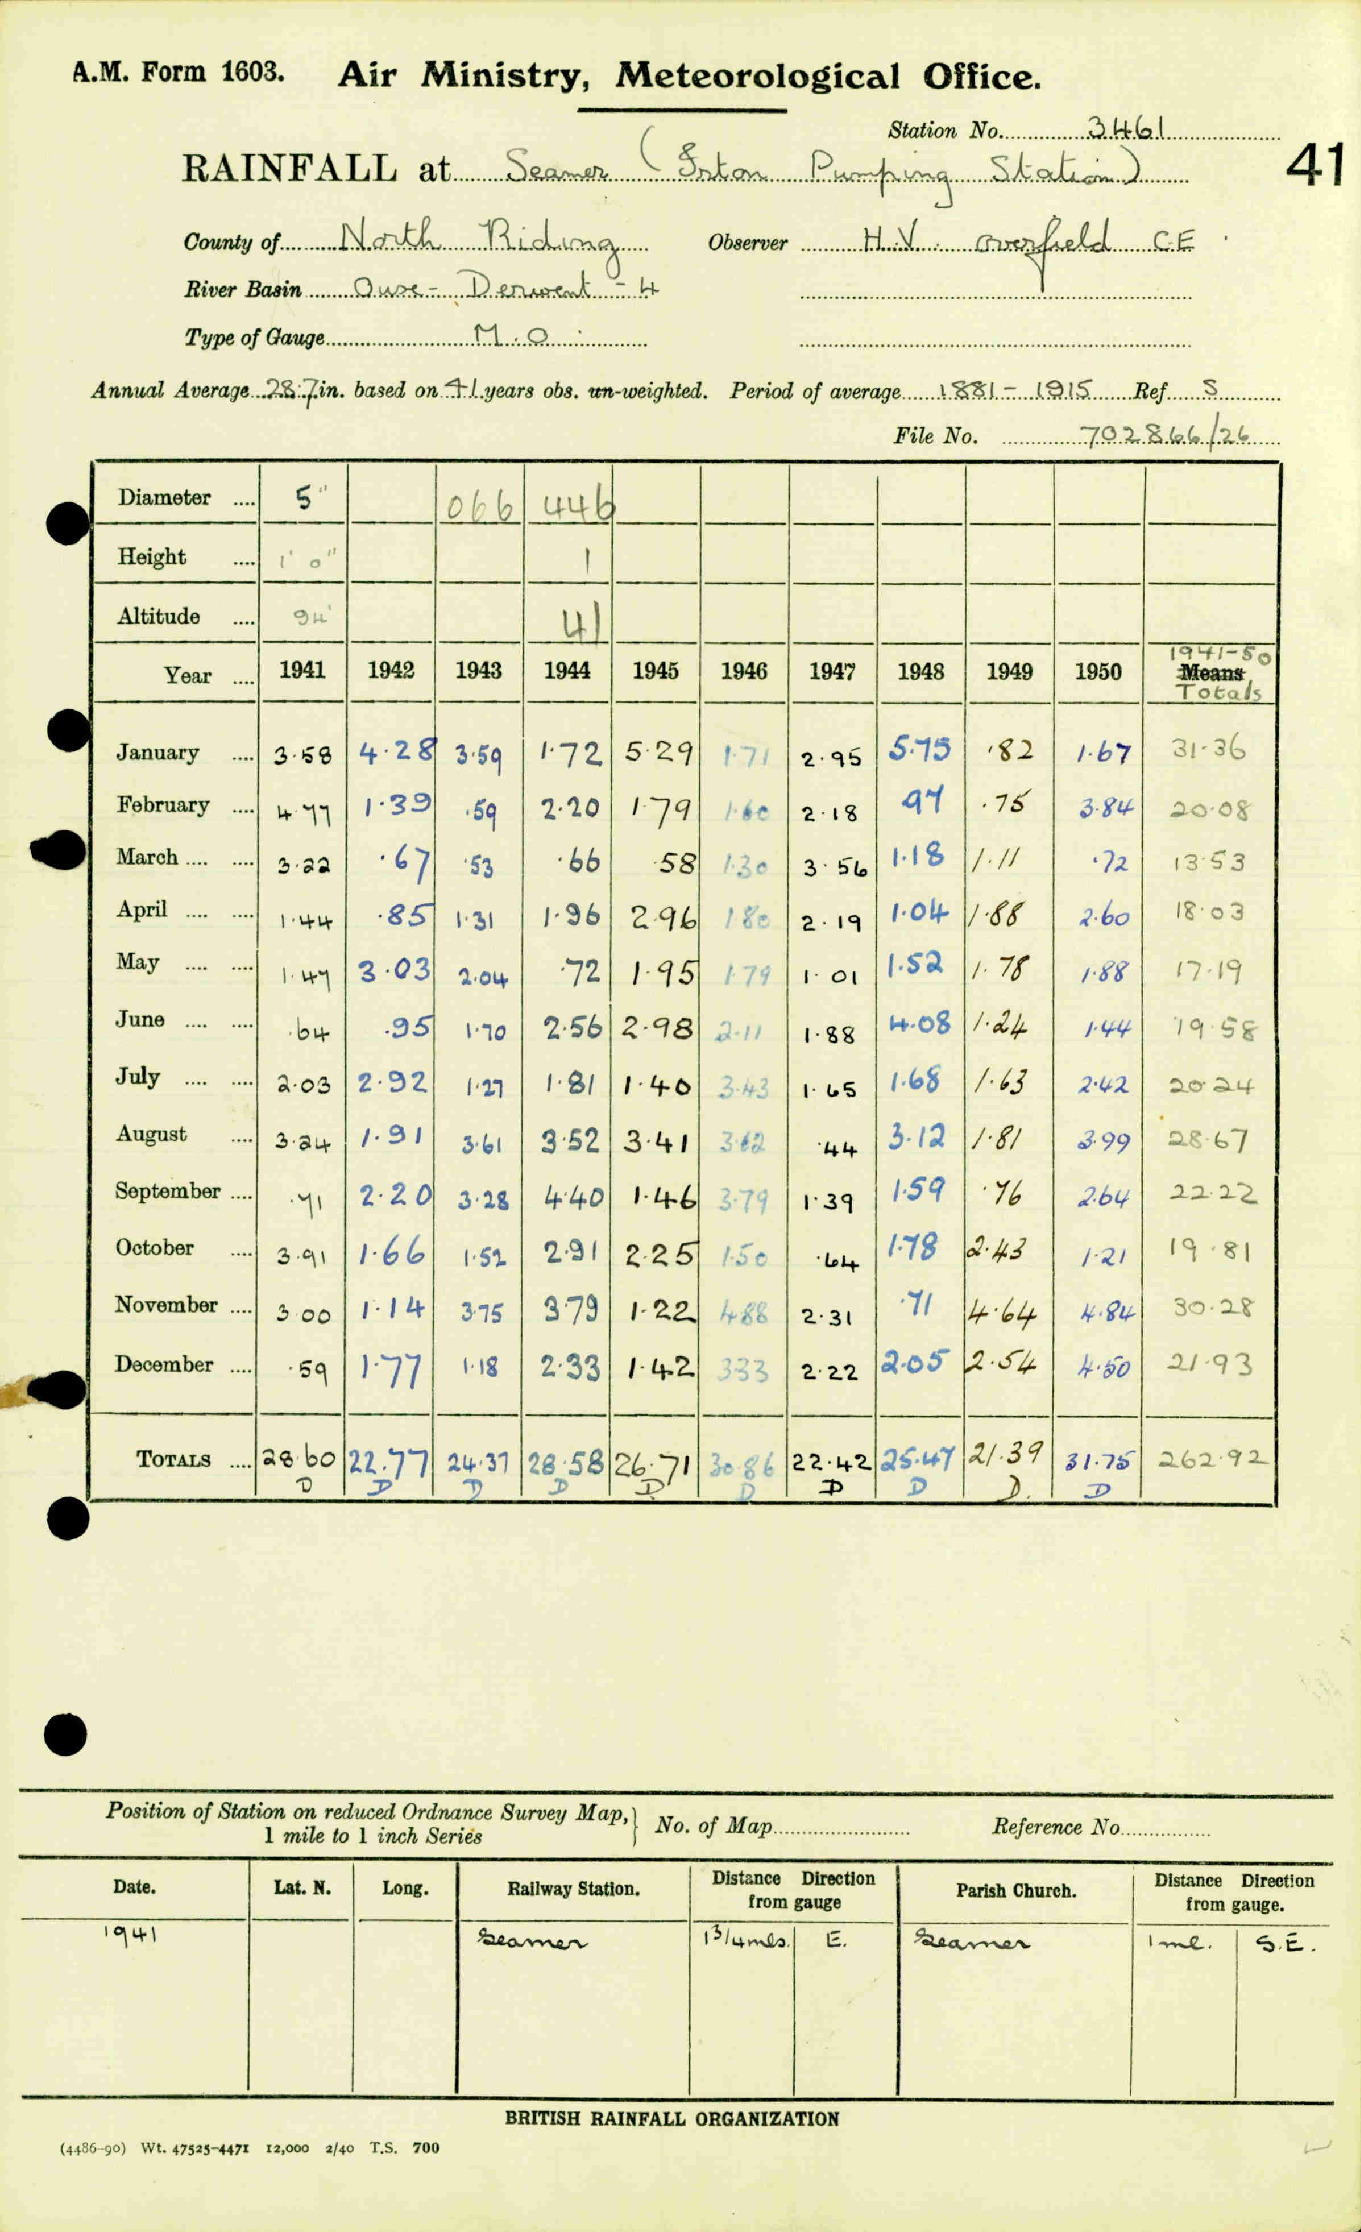 A.M. Form 1603. Air Ministry, Meteorological Office.
Station No. 3461
41
RAINFALL at Seamer (Irton Pumping Station)
County of North Riding Observer H.V. Overfield C.E.
River Basin Ouse - Derwent - 4
Type of Gauge M.O.
Annual Average 28.7 in. based on 41 years obs. un-weighted. Period of average 1881 - 1915 Ref. S
File No. 702866/26
Diameter .... 5" 066 446
Height .... 1' 0" 1
Altitude .... 94' 41
Year .... 1941 1942 1943 1944 1945 1946 1947 1948 1949 1950 1941-50 Means Totals
January .... 3.58 4.28 3.59 1.72 5.29 1.71 2.95 5.75 .82 1.67 31.36
February .... 4.77 1.39 .59 2.20 1.79 1.60 2.18 .97 .75 3.84 20.08
March .... .... 3.22 .67 .53 .66 .58 1.30 3.56 1.18 1.11 .72 13.53
April .... .... 1.44 .85 1.31 1.96 2.96 1.80 2.19 1.04 1.88 2.60 18.03
May .... .... 1.47 3.03 2.04 .72 1.95 1.79 1.01 1.52 1.78 1.88 17.19
June .... .... .64 .95 1.70 2.56 2.98 2.11 1.88 4.08 1.24 1.44 19.58
July .... .... 2.03 2.92 1.27 1.81 1.40 3.43 1.65 1.68 1.63 2.42 20.24
August .... 3.24 1.91 3.61 3.52 3.41 3.62 .44 3.12 1.81 3.99 28.67
September .... .71 2.20 3.28 4.40 1.46 3.79 1.39 1.59 .76 2.64 22.22
October .... 3.91 1.66 1.52 2.91 2.25 1.50 .64 1.78 2.43 1.21 19.81
November .... 3.00 1.14 3.75 3.79 1.22 4.88 2.31 .71 4.64 4.84 30.28
December .... .59 1.77 1.18 2.33 1.42 3.33 2.22 2.05 2.54 4.50 21.93
TOTALS .... 28.60 22.77 24.37 28.58 26.71 30.86 22.42 25.47 21.39 31.75 262.92
D D D D D D D D D D
Position of Station on reduced Ordnance Survey Map, 1 mile to 1 inch Series } No. of Map Reference No.
Date. Lat. N. Long. Railway Station. Distance Direction from gauge Parish Church. Distance Direction from gauge.
1941 Seamer 1 3/4 mls. E. Seamer 1 ml. S.E.
BRITISH RAINFALL ORGANIZATION
(4486-90) Wt. 47525-4471 12,000 2/40 T.S. 700